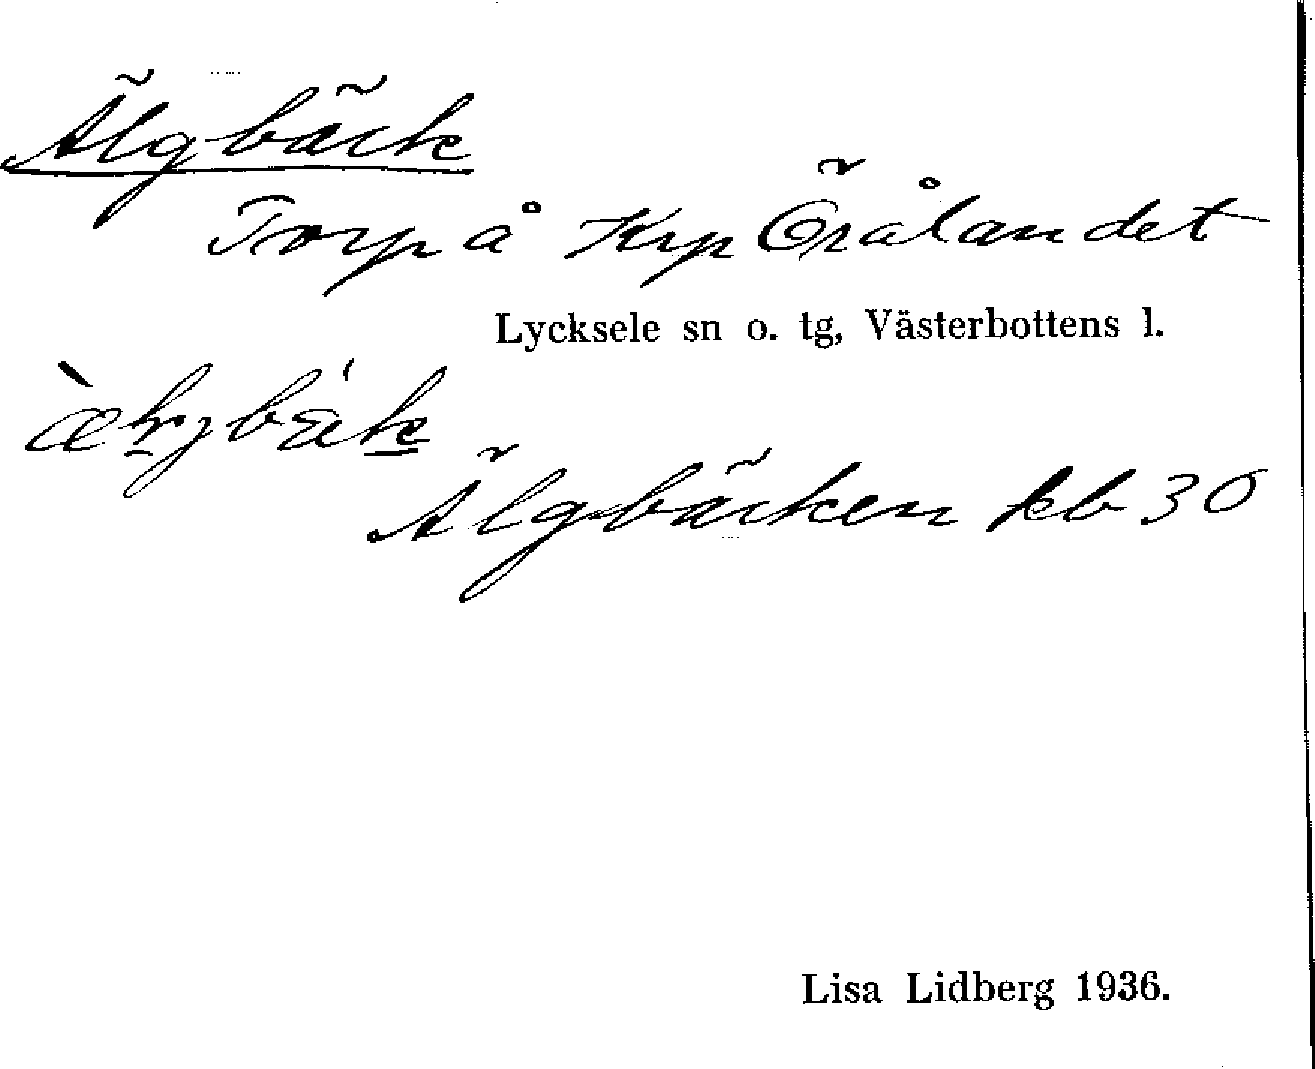 Älgbäck
Torp å Krp Öråland​et
Lycksele sn o. tg, Västerbottens l.
Älgbäcken kb 30
Lisa Lidberg 1936.